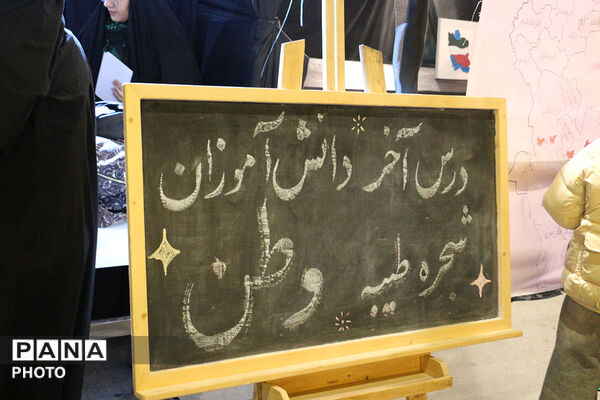 درس آخر دانش آموزان
شجره طیبه
وطن
PANA
PHOTO